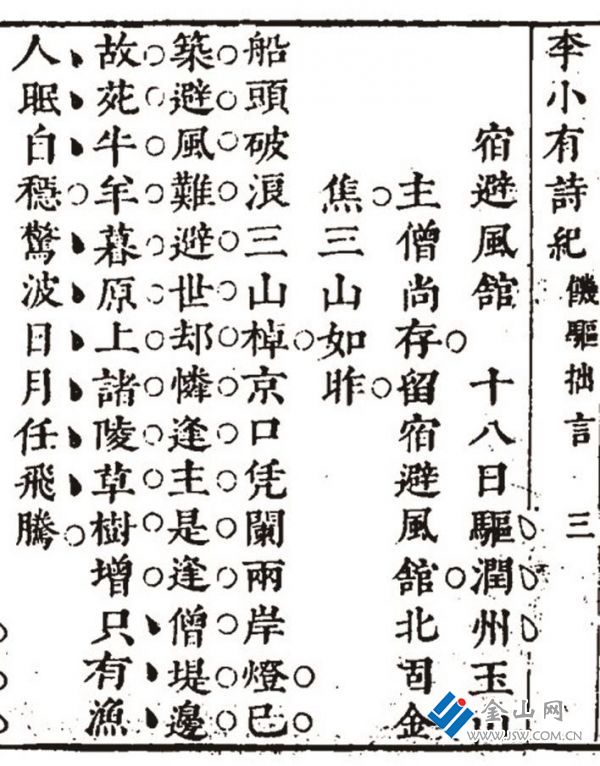 李小有詩紀 饑驅拙言 三
宿避風舘 十八日驅潤州玉山
主僧尚存留宿避風舘北固金
焦三山如昨
船頭破浪三山棹京口凭闌兩岸燈已
築避風難避世却憐逢主是逢僧堤邊
故苑牛羊暮原上諸陵草樹增只有漁
人眠自穩驚波日月任飛騰
金山网
WWW.JSW.COM.CN